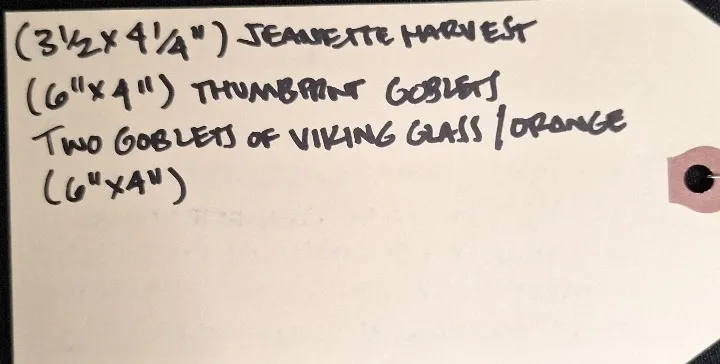 (3 1/2 x 4 1/4") JEANNETTE HARVEST
(6" x 4") THUMBPRINT GOBLETS
TWO GOBLETS OF VIKING GLASS / ORANGE
(6" x 4")